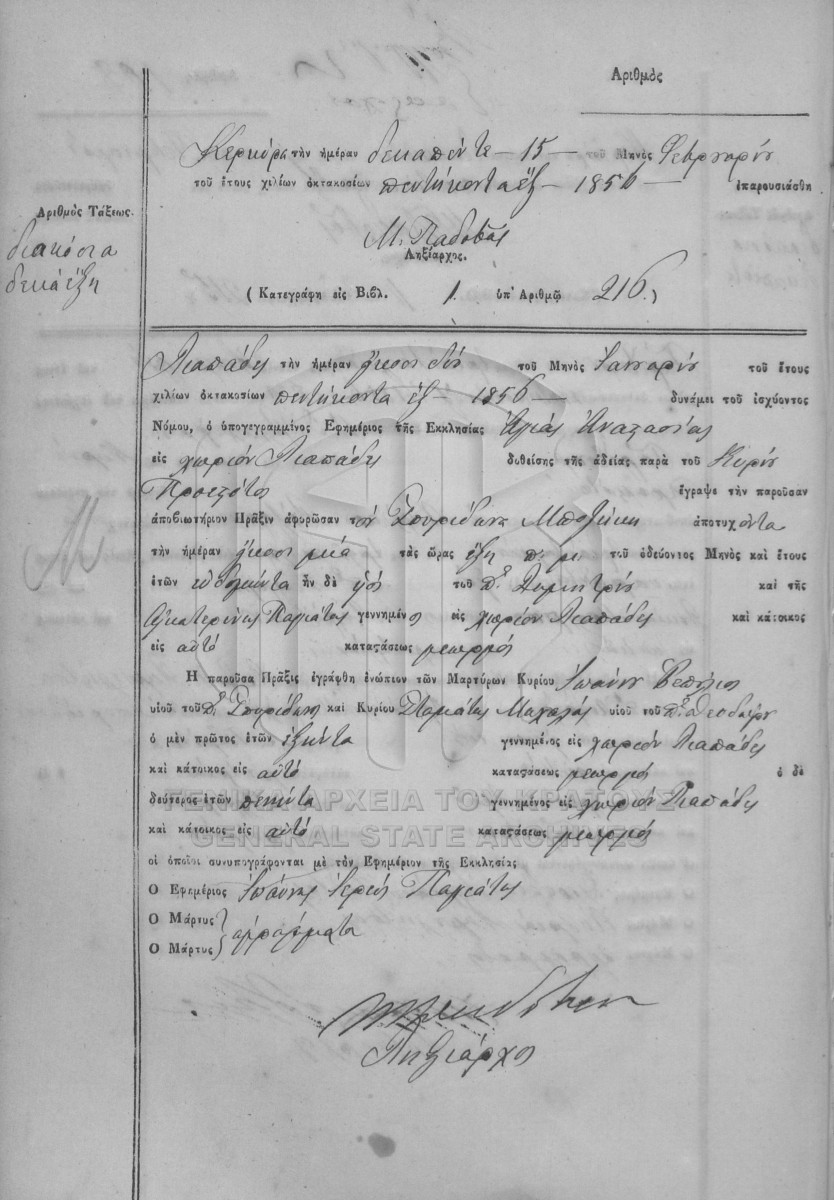 Ἀριθμὸς
Κερκύρα τὴν ἡμέραν δεκαπέντε – 15 – τοῦ Μηνὸς Φεβρουαρίου
τοῦ ἔτους χιλίων ὀκτακοσίων πεντήκοντα ἕξ – 1856 – ἐπαρουσιάσθη
Ἀριθμὸς Τάξεως.
διακόσια
δεκάέξη
Μ. Παδοβᾶς
Ληξίαρχος.
(Κατεγράφη εἰς Βιβλ. 1. ὑπ' Ἀριθμῷ 216.)
Λιαπάδες τὴν ἡμέραν ἤκοσι δύο τοῦ Μηνὸς Ἰανουαρίου τοῦ ἔτους
χιλίων ὀκτακοσίων πεντήκοντα ἕξ – 1856 – δυνάμει τοῦ ἰσχύοντος
Νόμου, ὁ ὑπογεγραμμένος Ἐφημέριος τῆς Ἐκκλησίας Ἁγίας Ἀναστασίας
εἰς χωρίον Λιαπάδες δοθείσης τῆς ἀδείας παρὰ τοῦ Κυρίου
Προεστότος ἔγραψε τὴν παροῦσαν
ἀποβιωτήριον Πρᾶξιν ἀφορῶσαν τὸν Σπυρίδωνα ἀποτυχόντα
τὴν ἡμέραν ἤκοσι μιά τὰς ὥρας ἕξη π. μ. τοῦ ὁδεύοντος Μηνὸς καὶ ἔτους
ἐτῶν ἦν δὲ υἱὸς τοῦ π. Δημητρίου καὶ τῆς
Αἰκατερίνης Παγιάτας γεννημένος εἰς χωρίον Λιαπάδες καὶ κάτοικος
εἰς αὐτό καταστάσεως γεωργός
Ἡ παροῦσα Πρᾶξις ἐγράφθη ἐνώπιον τῶν Μαρτύρων Κυρίου Ἰωάννου
υἱοῦ τοῦ π. Σπυρίδωνος καὶ Κυρίου Σταμάτης υἱοῦ τοῦ π. Θεοδώρου
ὁ μὲν πρῶτος ἐτῶν ἑξήντα γεννημένος εἰς χωρίον Λιαπάδες
καὶ κάτοικος εἰς αὐτό καταστάσεως γεωργός ὁ δὲ
δεύτερος ἐτῶν πενήντα γεννημένος εἰς χωρίον Λιαπάδες
ΓΕΝΙΚΑ ΑΡΧΕΙΑ ΤΟΥ ΚΡΑΤΟΥΣ
καὶ κάτοικος εἰς αὐτό καταστάσεως γεωργός
GENERAL STATE ARCHIVES
οἱ ὁποῖοι συνυπογράφονται μὲ τὸν Ἐφημέριον τῆς Ἐκκλησίας
Ὁ Ἐφημέριος Ἰωάννης Ἱερεύς Παγιάτας
Ὁ Μάρτυς
Ὁ Μάρτυς } ἀγράμματοι
Ληξίαρχος